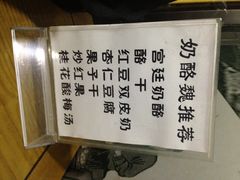 奶酪魏推荐
宫廷奶酪
酪干
红豆双皮奶
杏仁豆腐
果子干
炒红果
桂花酸梅汤